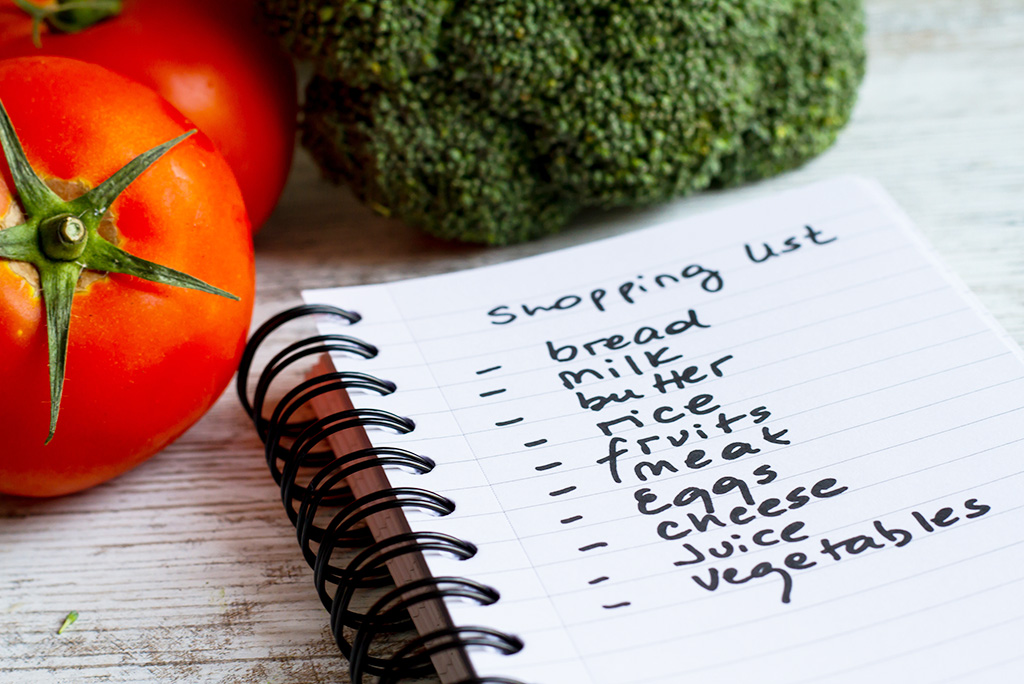 Shopping list
- bread
- milk
- butter
- rice
- fruits
- meat
- eggs
- cheese
- juice
- vegetables